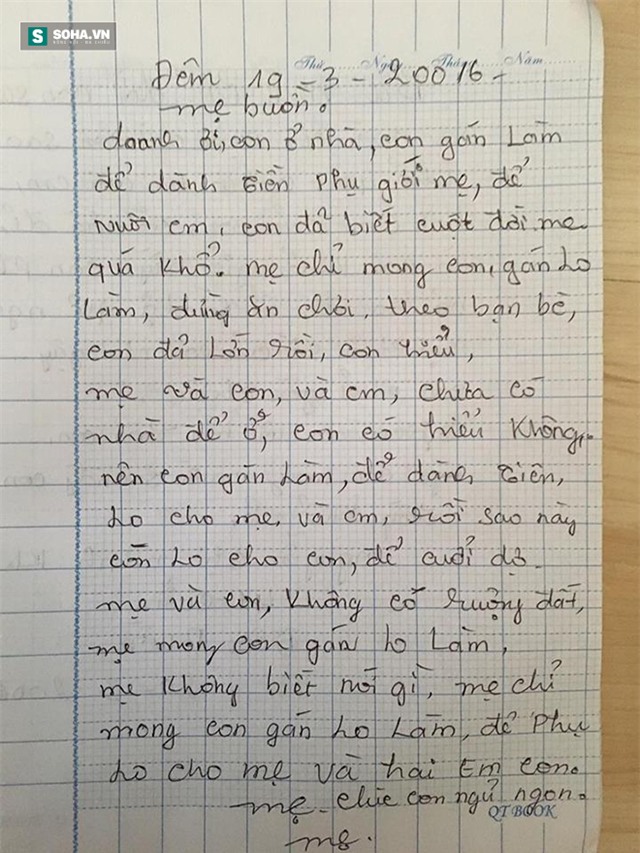 SOHA.VN
Thứ Ngày Tháng Năm
Đêm 19-3-20016-
mẹ buồn.
doanh ơi, con ở nhà, con gắn Làm
để dành tiền phụ giối mẹ, để
nuôi em, con đã biết cuột đời mẹ
quá khổ. mẹ chỉ mong con, gắn Lo
Làm, đừng ăn chơi, theo bạn bè,
con đã Lớn rồi, con hiểu,
mẹ và con, và em, chưa có
nhà để ở, con có hiểu không,
nên con gắn Làm, để dành tiền,
Lo cho mẹ, và em, rồi sao này
còn Lo cho con, để cưới dợ.
mẹ và con, không có ruộng đất,
mẹ mong con gắn lo Làm,
mẹ không biết nói gì, mẹ chỉ
mong con gắn Lo Làm, để phụ
Lo cho mẹ và hai Em con.
mẹ chúc con ngủ ngon.
QT BOOK
mẹ.